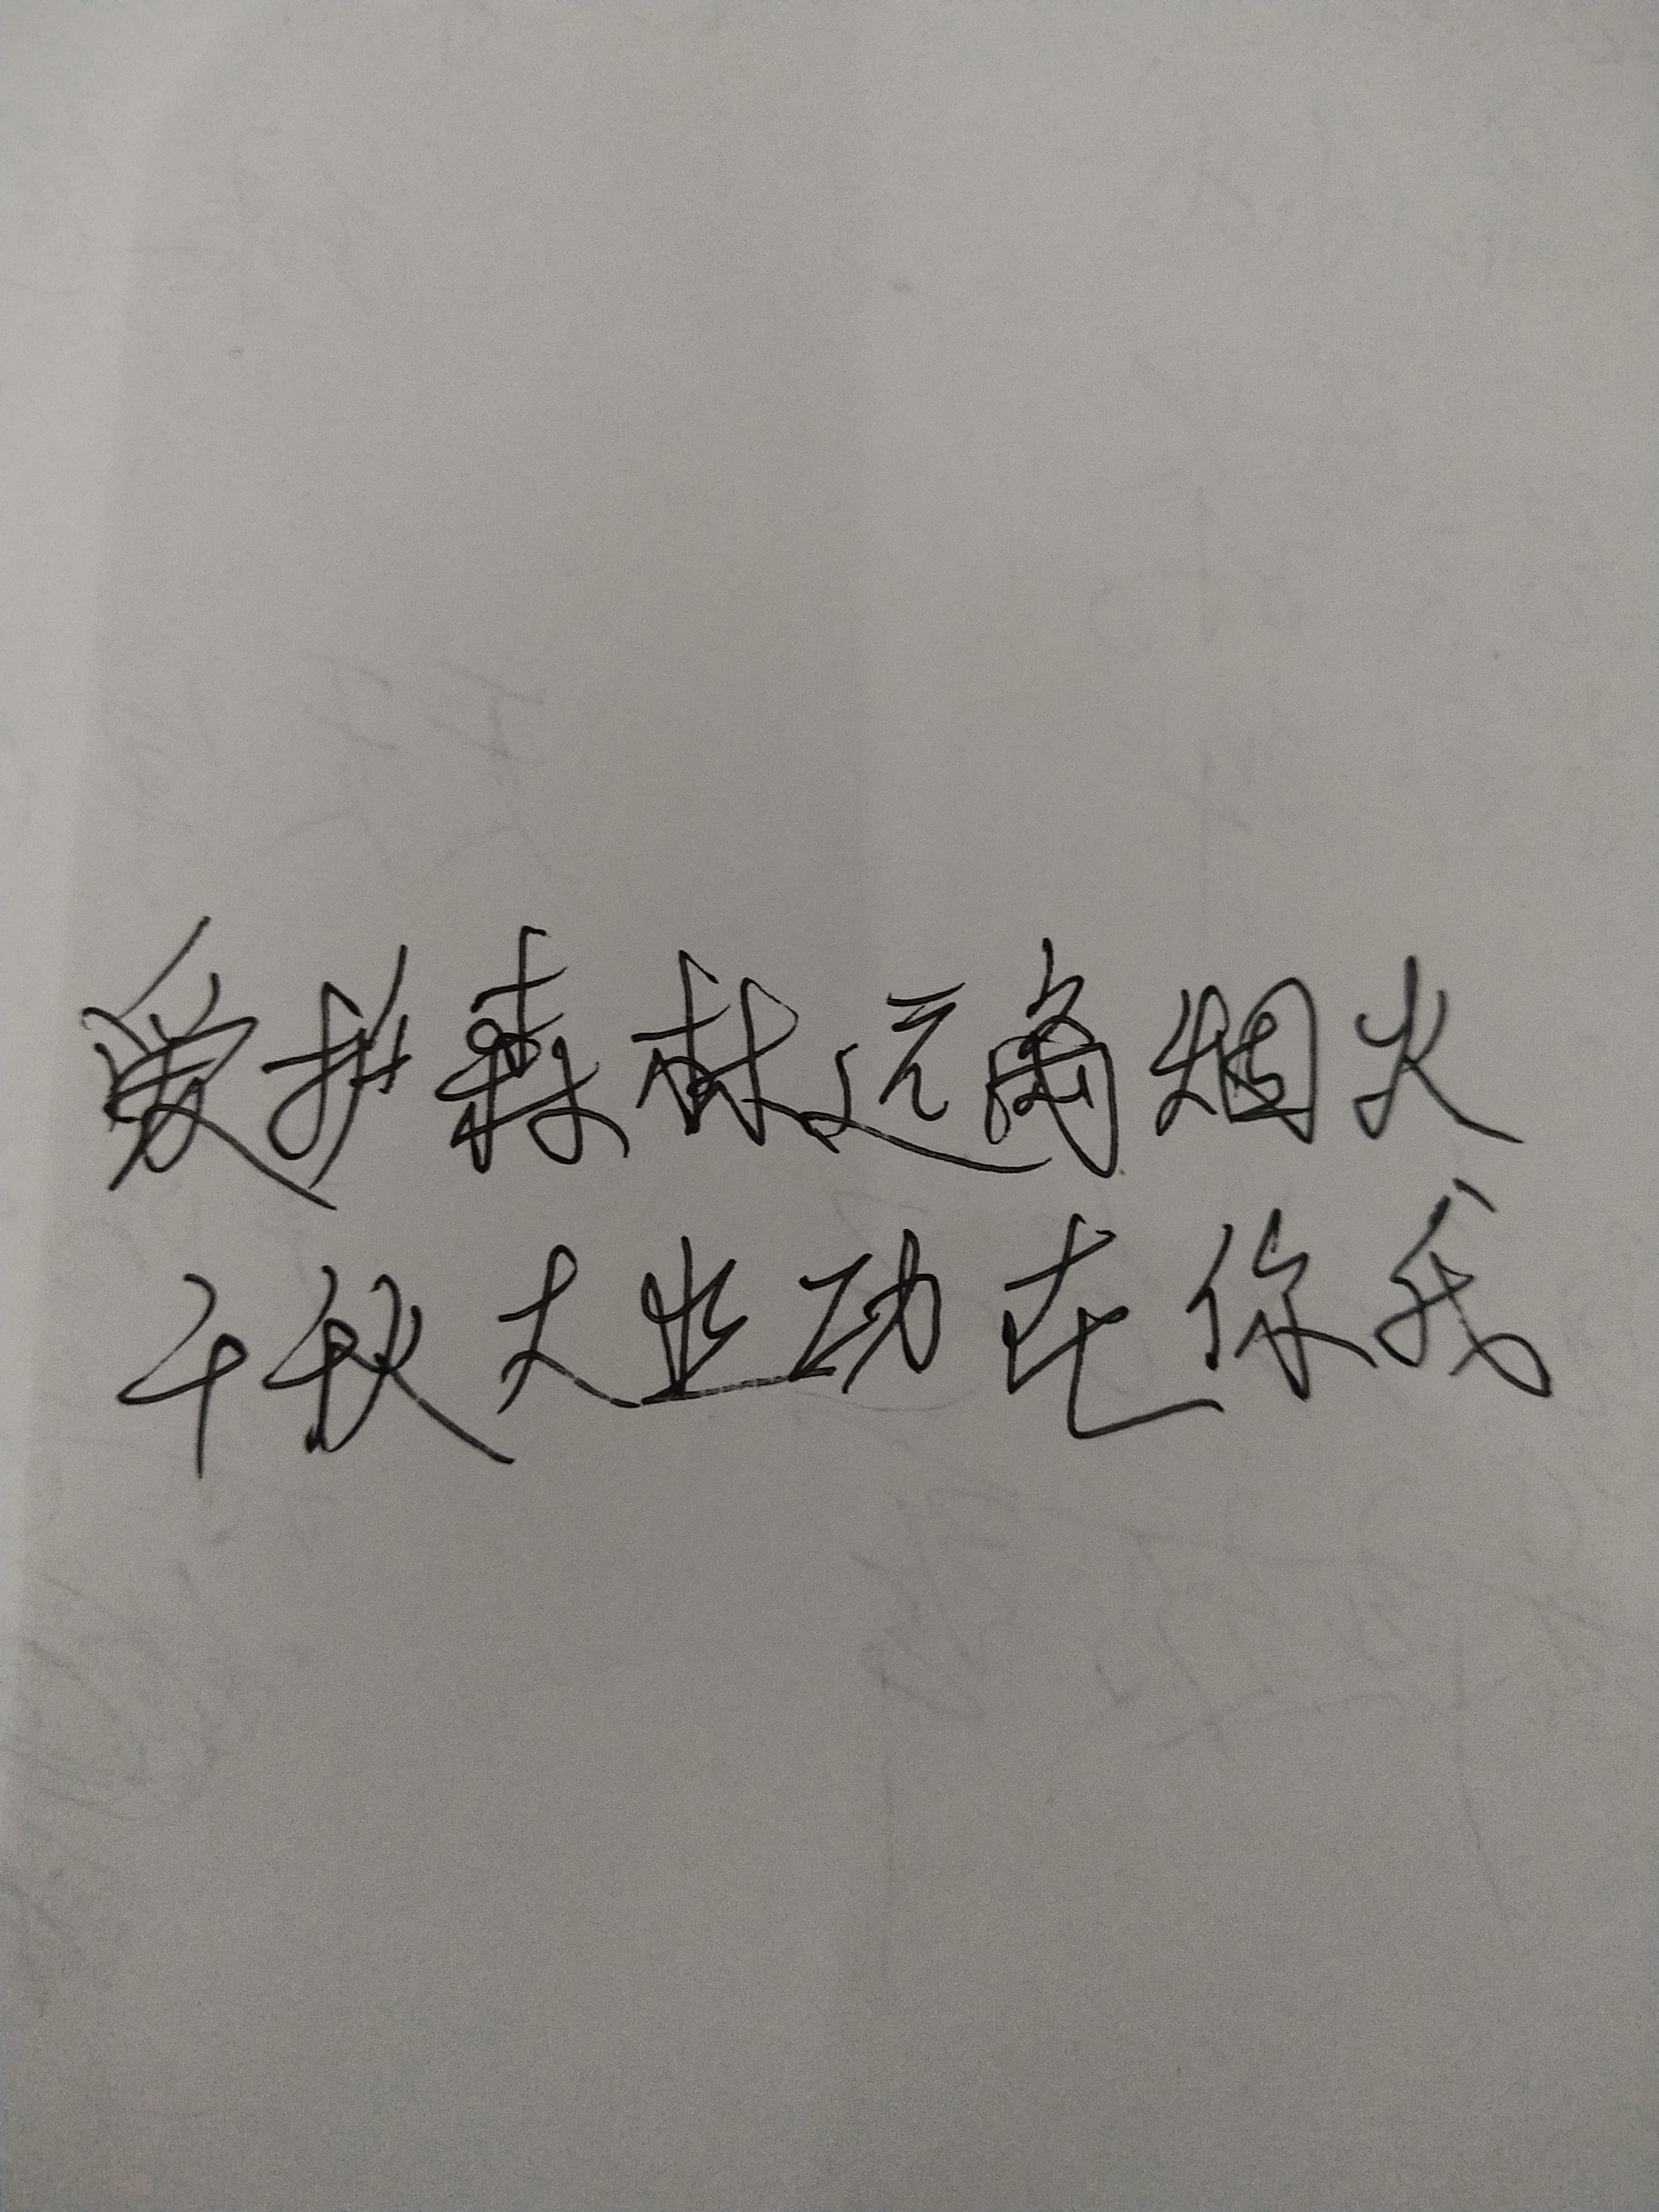 爱护森林远离烟火
千秋大业功在你我